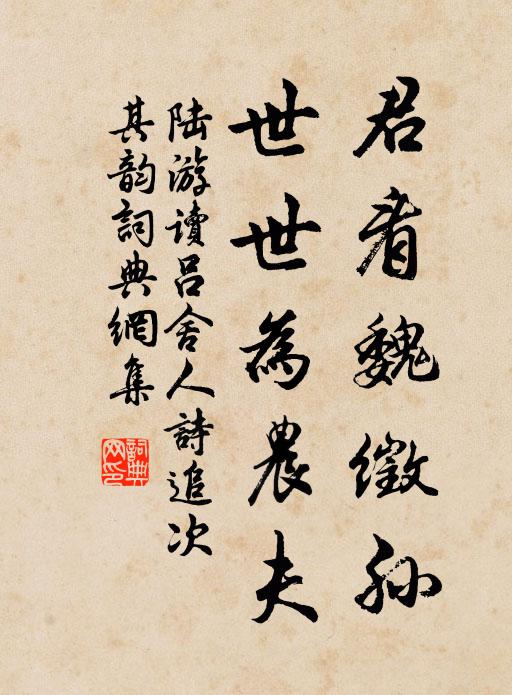 君看魏徵孫
世世為農夫
陆游读吕舍人詩追次
其韵詞典網集
詞典
网印